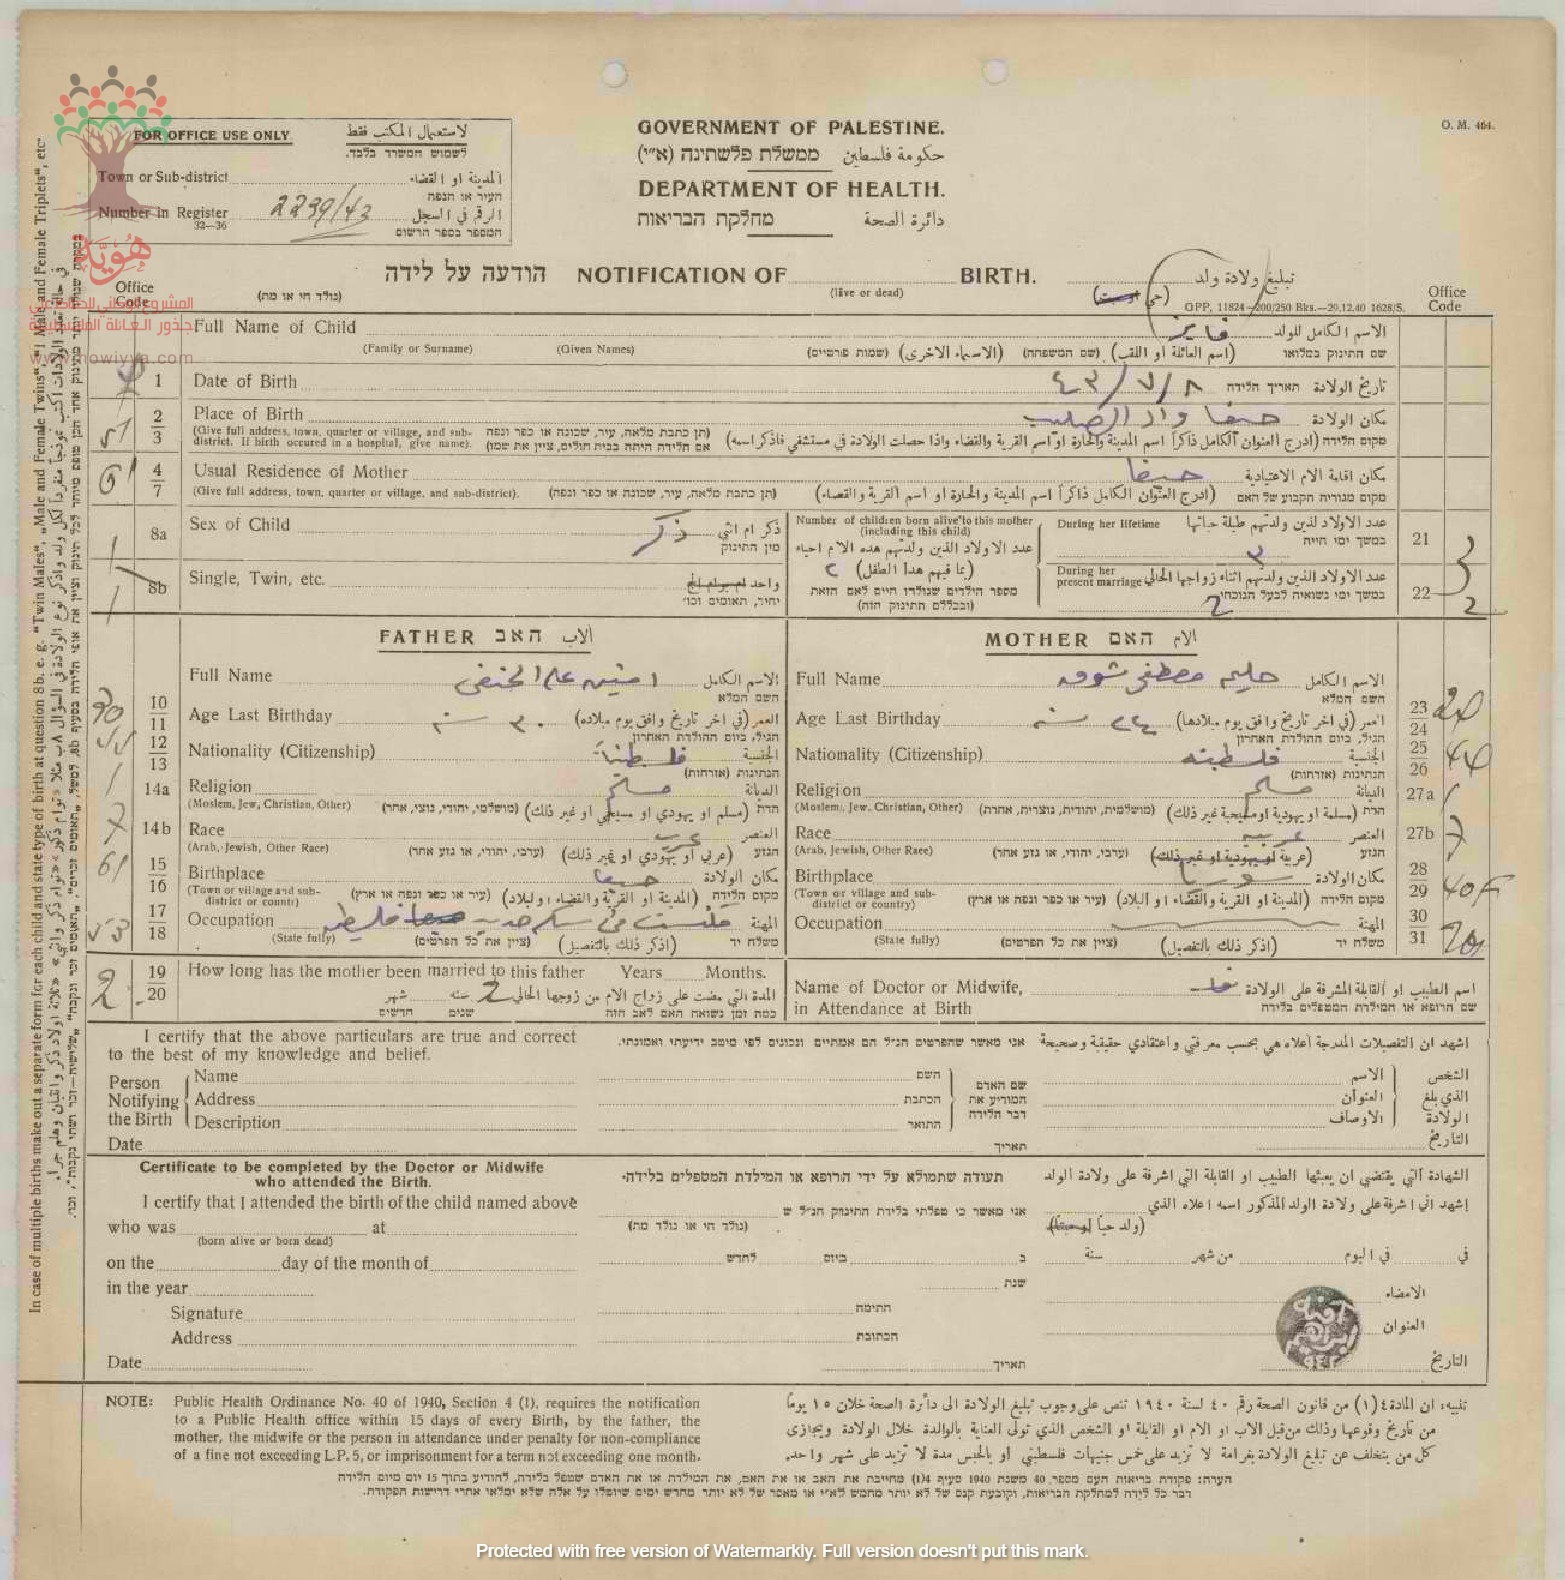 O. M. 464.
FOR OFFICE USE ONLY. لاستعمال المكتب فقط
לשמוש המשרד בלבד.
Town or Sub-district المدينة او القضاء
העיר או הנפה
Number in Register 2239/43 الرقم في السجل
32—36 המספר בספר הרשום
GOVERNMENT OF PALESTINE.
ממשלת פלשתינה (א״י) حكومة فلسطين
DEPARTMENT OF HEALTH.
מחלקת הבריאות دائرة الصحة
הודעה על לידה NOTIFICATION OF BIRTH. تبليغ ولادة ولد
(נולד חי או מת) (live or dead)
GPP. 11824—200/250 Bks.—29.12.40 1628/S.
Office Code Office Code
هوية
www.howiyya.com
Full Name of Child فايز الاسم الكامل للولد
(Family or Surname) (Given Names) (שמות פרטיים) (الاسماء الاخرى) (שם המשפחה) (اسم العائلة او اللقب) שם התינוק במלואו
1 Date of Birth ٨/٧/٤٣ תאריך הלידה تاريخ الولادة
2 3 Place of Birth حيفا واد الصليب مكان الولادة
(Give full address, town, quarter or village, and sub-district. If birth occured in a hospital, give name).
(תן כתבת מלאה, עיר, שכונה או כפר ונפה אם הלידה היתה בבית חולים, ציין את שמו)
(ادرج العنوان الكامل ذاكراً اسم المدينة والحارة او اسم القرية والقضاء واذا حصلت الولادة في مستشفى فاذكر اسمه) מקום הלידה
4 7 Usual Residence of Mother حيفا مكان اقامة الام الاعتيادية
(Give full address, town, quarter or village, and sub-district). (תן כתבת מלאה, עיר, שכונה או כפר ונפה) (ادرج العنوان الكامل ذاكراً اسم المدينة والحارة او اسم القرية والقضاء) מקום מגוריה הקבוע של האם
8a Sex of Child ذكر ذكر ام انثى
מין התינוק
8b Single, Twin, etc. واحد
יחיד, תאומים וכו׳
Number of children born alive to this mother (including this child)
عدد الاولاد الذين ولدتهم هذه الام احياء
(بما فيهم هذا الطفل)
מספר הילדים שנולדו חיים לאם הזאת
(ובכללם התינוק הזה)
During her lifetime عدد الاولاد الذين ولدتهم طيلة حياتها 21
במשך ימי חייה
٣
During her present marriage عدد الاولاد الذين ولدتهم اثناء زواجها الحالي 22
במשך ימי נשואיה לבעל הנוכחי 2
FATHER האב الاب
10 Full Name امين علي الحنفي الاسم الكامل
השם המלא
11 Age Last Birthday ٣٠ سنة العمر (في اخر تاريخ وافق يوم ميلاده)
הגיל, ביום ההולדת האחרון
12 13 Nationality (Citizenship) الجنسية
הנתינות (אורחות)
14a Religion مسلم الديانة
(Moslem, Jew, Christian, Other) (מושלמי, יהודי, נוצי, אחר) (مسلم او يهودي او مسيحي او غير ذلك) הדת
14b Race عرب العنصر
(Arab, Jewish, Other Race) (ערבי, יהודי, או גזע אחר) (عربي او يهودي او غير ذلك) הגזע
15 16 Birthplace حيفا مكان الولادة
(Town or village and sub-district or country) (עיר או כפר ונפה או ארץ) (المدينة او القرية والقضاء او البلاد) מקום הלידה
17 18 Occupation سكة حديد فلسطين المهنة
(State fully) (ציין את כל הפרטים) (اذكر ذلك بالتفصيل) משלח יד
MOTHER האם الام
Full Name مصطفى الاسم الكامل 23
השם המלא
Age Last Birthday ٢٤ سنة العمر (في اخر تاريخ وافق يوم ميلادها) 24
הגיל, ביום ההולדת האחרון
Nationality (Citizenship) فلسطينية الجنسية 25 26
הנתינות (אורחות)
Religion مسلم الديانة 27a
(Moslem, Jew, Christian, Other) (מושלמית, יהודית, נוצרית, אחרת) (مسلمة او يهودية او مسيحية او غير ذلك) הדת
Race عربية العنصر 27b
(Arab, Jewish, Other Race) (ערבי, יהודי, או גזע אחר) (عربية او يهودية او غير ذلك) הגזע
Birthplace سوريا مكان الولادة 28 29
(Town or village and sub-district or country) (עיר או כפר ונפה או ארץ) (المدينة او القرية والقضاء او البلاد) מקום הלידה
Occupation المهنة 30 31
(State fully) (ציין את כל הפרטים) (اذكر ذلك بالتفصيل) משלח יד
19 20 How long has the mother been married to this father Years Months.
المدة التي مضت على زواج الام من زوجها الحالي 2 سنه شهر
כמה זמן נשואה האם לאב הזה שנים חדשים
Name of Doctor or Midwife, in Attendance at Birth اسم الطبيب او القابلة المشرفة على الولادة
שם הרופא או המילדת המטפלים בלידה
I certify that the above particulars are true and correct to the best of my knowledge and belief.
אני מאשר שהפרטים הנ״ל הם אמתיים ונכונים לפי מיטב ידיעתי ואמונתי.
اشهد ان التفصيلات المدرجة أعلاه هي بحسب معرفتي واعتقادي حقيقية وصحيحة
Person Notifying the Birth שם האדם המודיע את דבר הלידה الشخص الذي بلغ الولادة
Name השם الاسم
Address הכתבת العنوان
Description התואר الاوصاف
Date תאריך التاريخ
Certificate to be completed by the Doctor or Midwife who attended the Birth.
תעודה שתמולא על ידי הרופא או המילדת המטפלים בלידה.
الشهادة التي يقتضي ان يعبئها الطبيب او القابلة التي اشرفة على ولادة الولد
I certify that I attended the birth of the child named above
אני מאשר כי טפלתי בלידת התינוק הנ״ל ש
اشهد اني اشرفة على ولادة الولد المذكور اسمه اعلاه الذي
who was at (נולד חי או נולד מת)
(born alive or born dead)
on the day of the month of לחדש ביום ב في في اليوم من شهر سنة
in the year שנת
Signature החתימה الامضاء
Address הכתובת العنوان
Date תאריך التاريخ
NOTE: Public Health Ordinance No. 40 of 1940, Section 4 (1), requires the notification
to a Public Health office within 15 days of every Birth, by the father, the
mother, the midwife or the person in attendance under penalty for non-compliance
of a fine not exceeding L.P.5, or imprisonment for a term not exceeding one month.
تنبيه: ان المادة ٤(١) من قانون الصحة رقم ٤٠ لسنة ١٩٤٠ تنص على وجوب تبليغ الولادة الى دائرة الصحة خلال ١٥ يوماً
من تاريخ وقوعها وذلك من قبل الاب او الام او القابلة او الشخص الذي تولى العناية بالوالدة خلال الولادة ويجازى
كل من يتخلف عن تبليغ الولادة بغرامة لا تزيد على خمس جنيهات فلسطيني او بالحبس مدة لا تزيد على شهر واحد.
הערה: פקודת בריאות העם מספר 40 משנת 1940 סעיף 4(1) מחייבת את האב או את האם, את המילדת או את האדם שטפל בלידה, להודיע בתוך 15 יום מיום הלידה
In case of multiple births make out a separate form for each child and state type of birth at question 8b. e. g. "Twin Males", "Male and Female Twins", "1 Male and Female Triplets", etc
Protected with free version of Watermarkly. Full version doesn't put this mark.